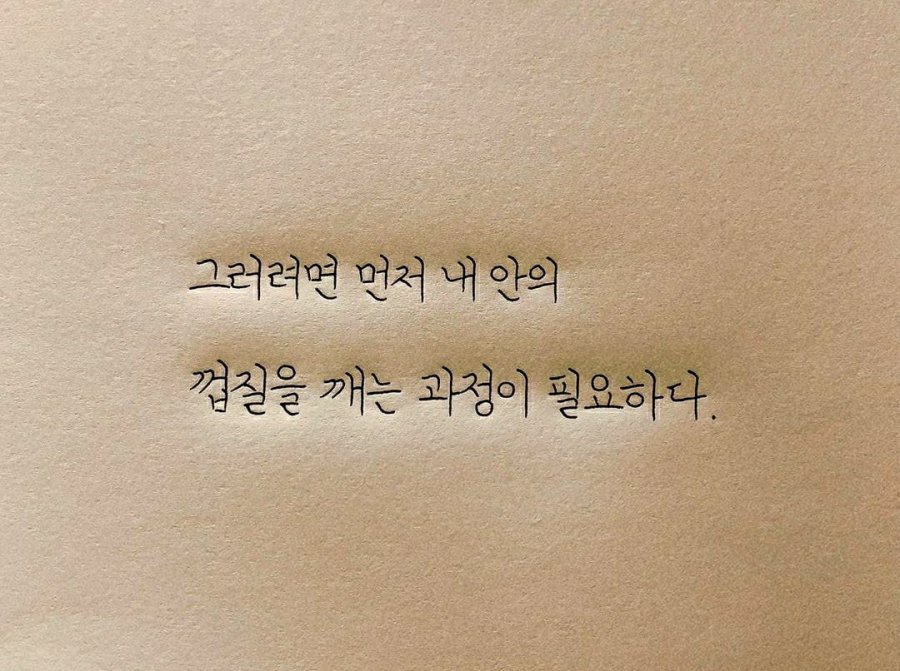 그러려면 먼저 내 안의
껍질을 깨는 과정이 필요하다.